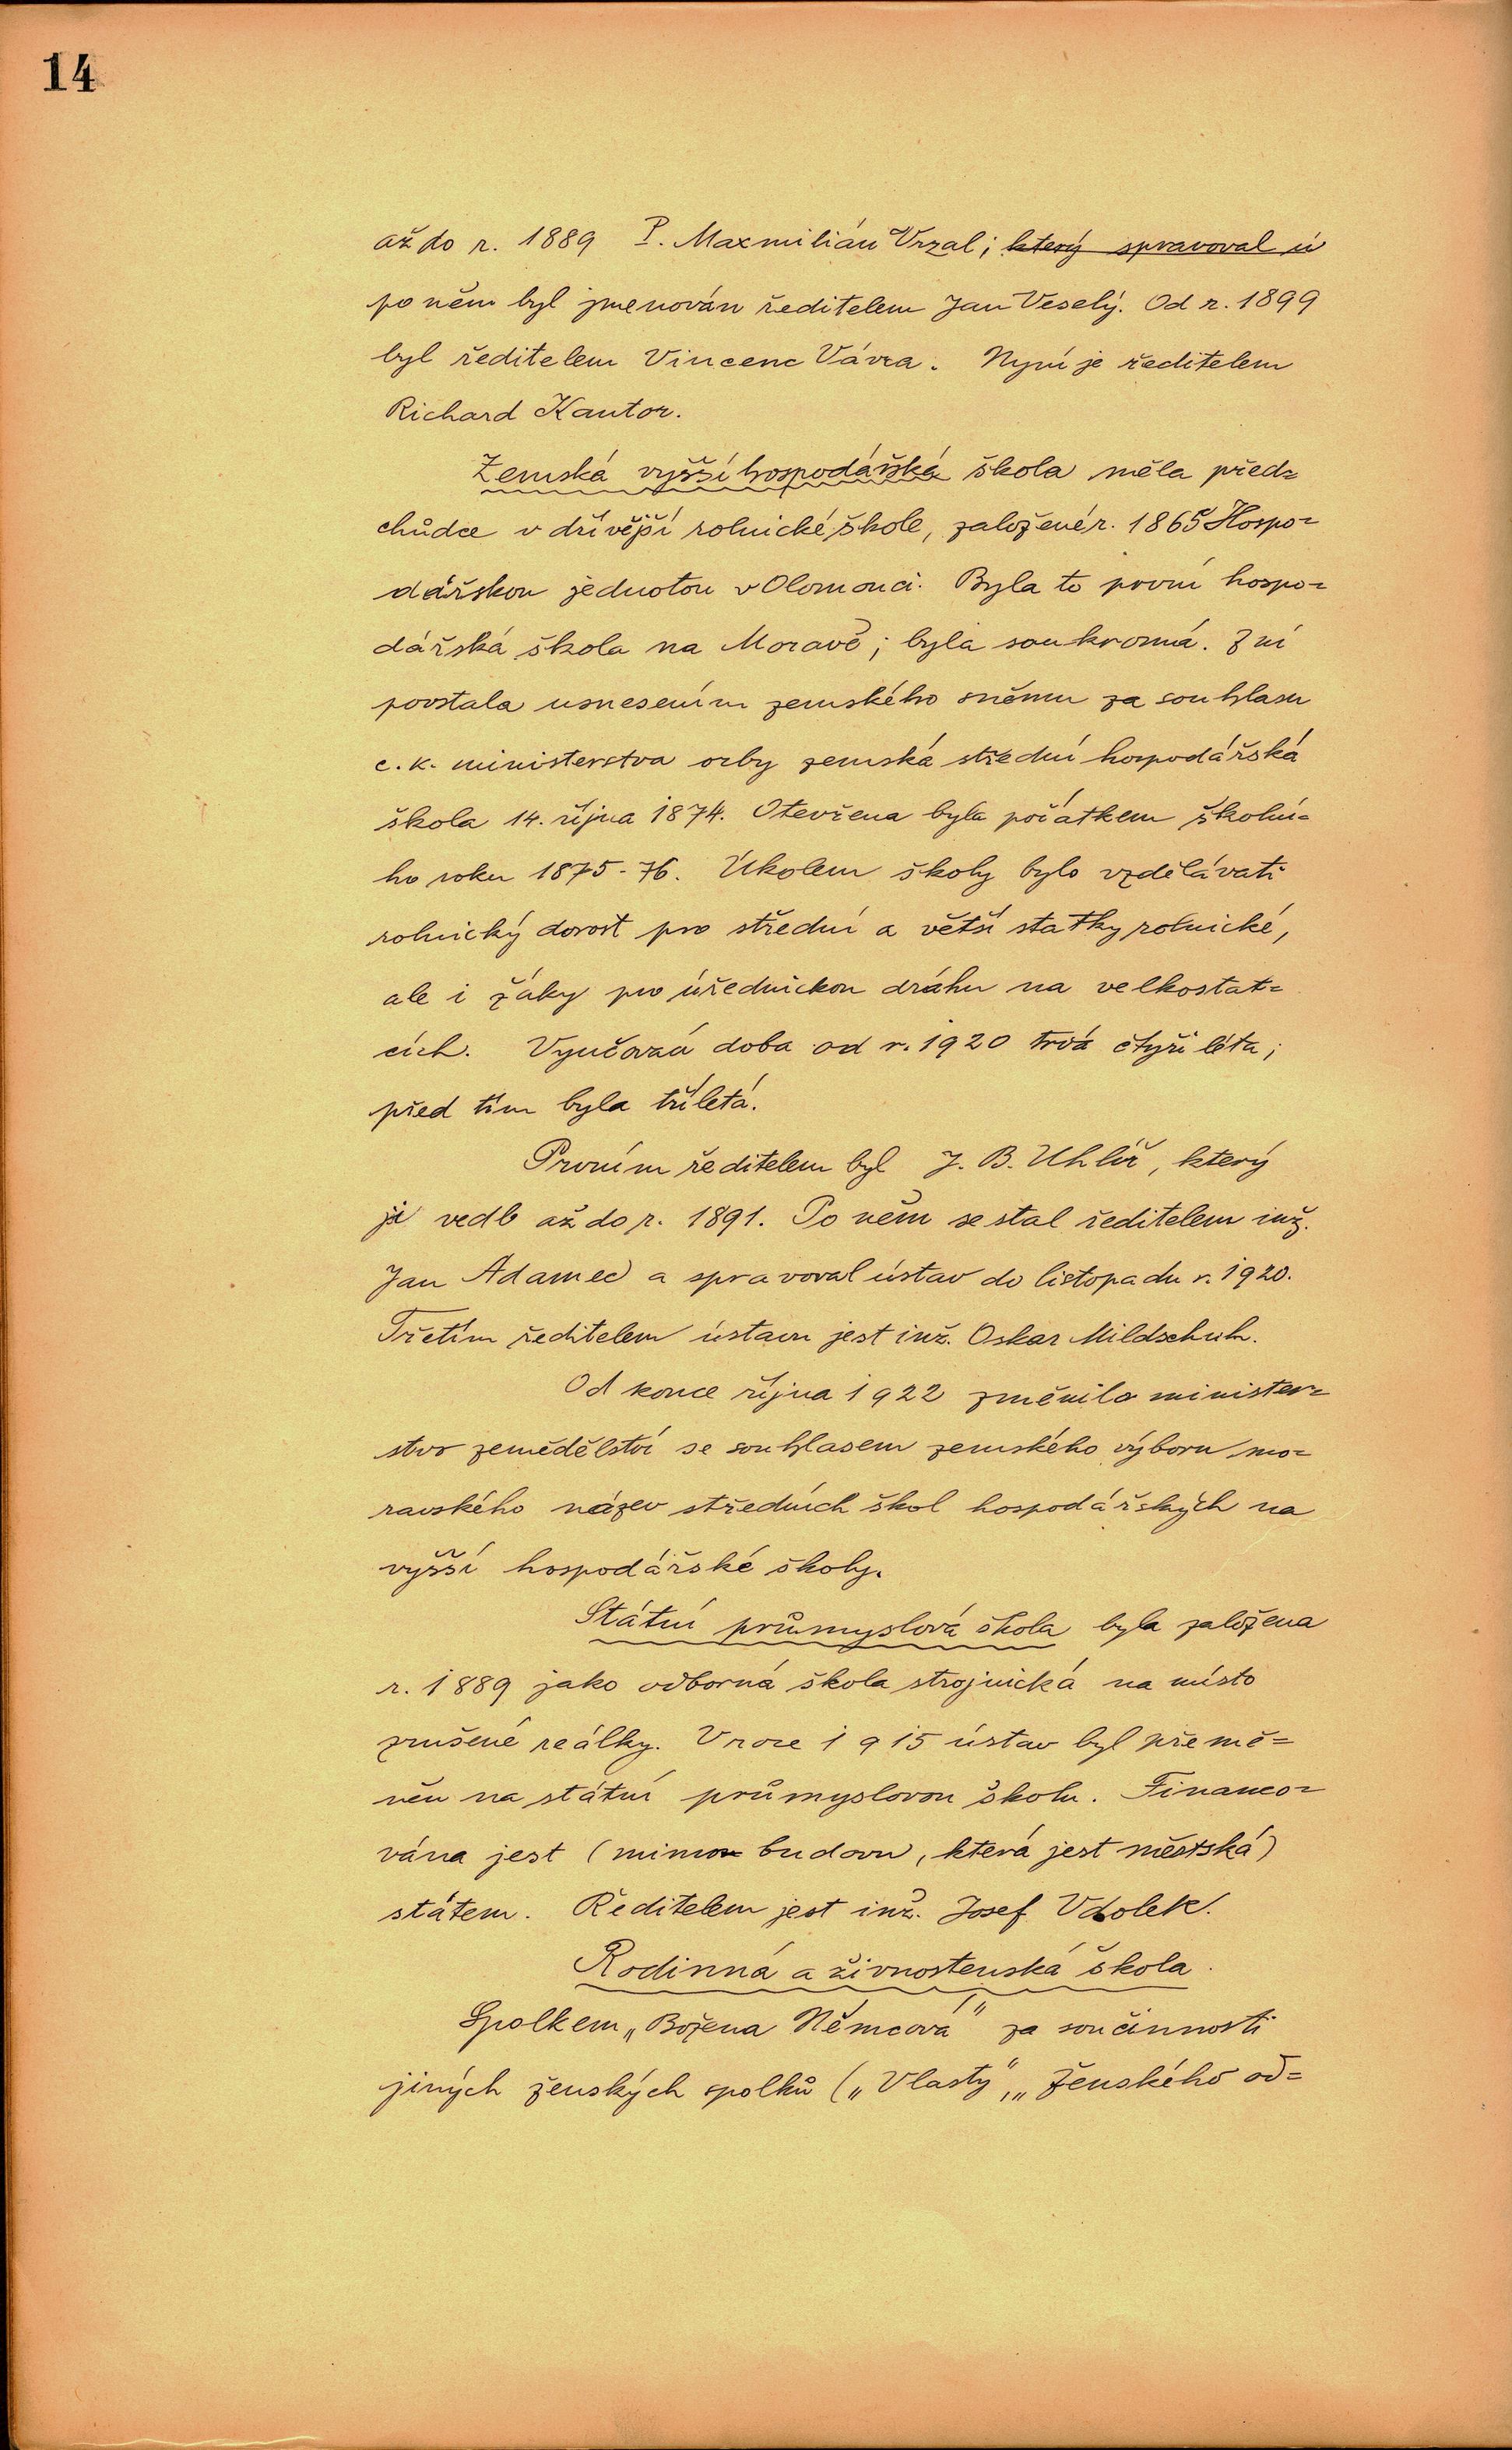 14
až do r. 1889 P. Maxmilián Vrzal; který spravoval ú
po něm byl jmenován ředitelem Jan Veselý. Od r. 1899
byl ředitelem Vincenc Vávra. Nyní je ředitelem
Richard Kantor.
Zemská vyšší hospodářská škola měla před=
chůdce v dřívější rolnické škole, založené r. 1865 Hospo=
dářskou jednotou v Olomouci. Byla to první hospo=
dářská škola na Moravě; byla soukromá. Z ní
povstala usnesením zemského sněmu za souhlasu
c. k. ministerstva orby zemská střední hospodářská
škola 14. října 1874. Otevřena byla počátkem školní=
ho roku 1875-76. Úkolem školy bylo vzdělávati
rolnický dorost pro střední a větší statky rolnické,
ale i žáky pro úřednickou dráhu na velkostat=
cích. Vyučovací doba od r. 1920 trvá čtyři léta;
před tím byla tříletá.
Prvním ředitelem byl J. B. Uhlíř, který
ji vedl až do r. 1891. Po něm se stal ředitelem inž.
Jan Adamec a spravoval ústav do listopadu r. 1920.
Třetím ředitelem ústavu jest inž. Oskar Mildschuh.
Od konce října 1922 změnilo minister=
stvo zemědělství se souhlasem zemského výboru mo=
ravského název středních škol hospodářských na
vyšší hospodářské školy.
Státní průmyslová škola byla založena
r. 1889 jako odborná škola strojnická na místo
zrušené reálky. V roce 1915 ústav byl přemě=
něn na státní průmyslovou školu. Financo=
vána jest (mimo budovu, která jest městská)
státem. Ředitelem jest inž. Josef Vdolek.
Rodinná a živnostenská škola.
Spolkem „Božena Němcová" za součinnosti
jiných ženských spolků („Vlasty", „Ženského od=